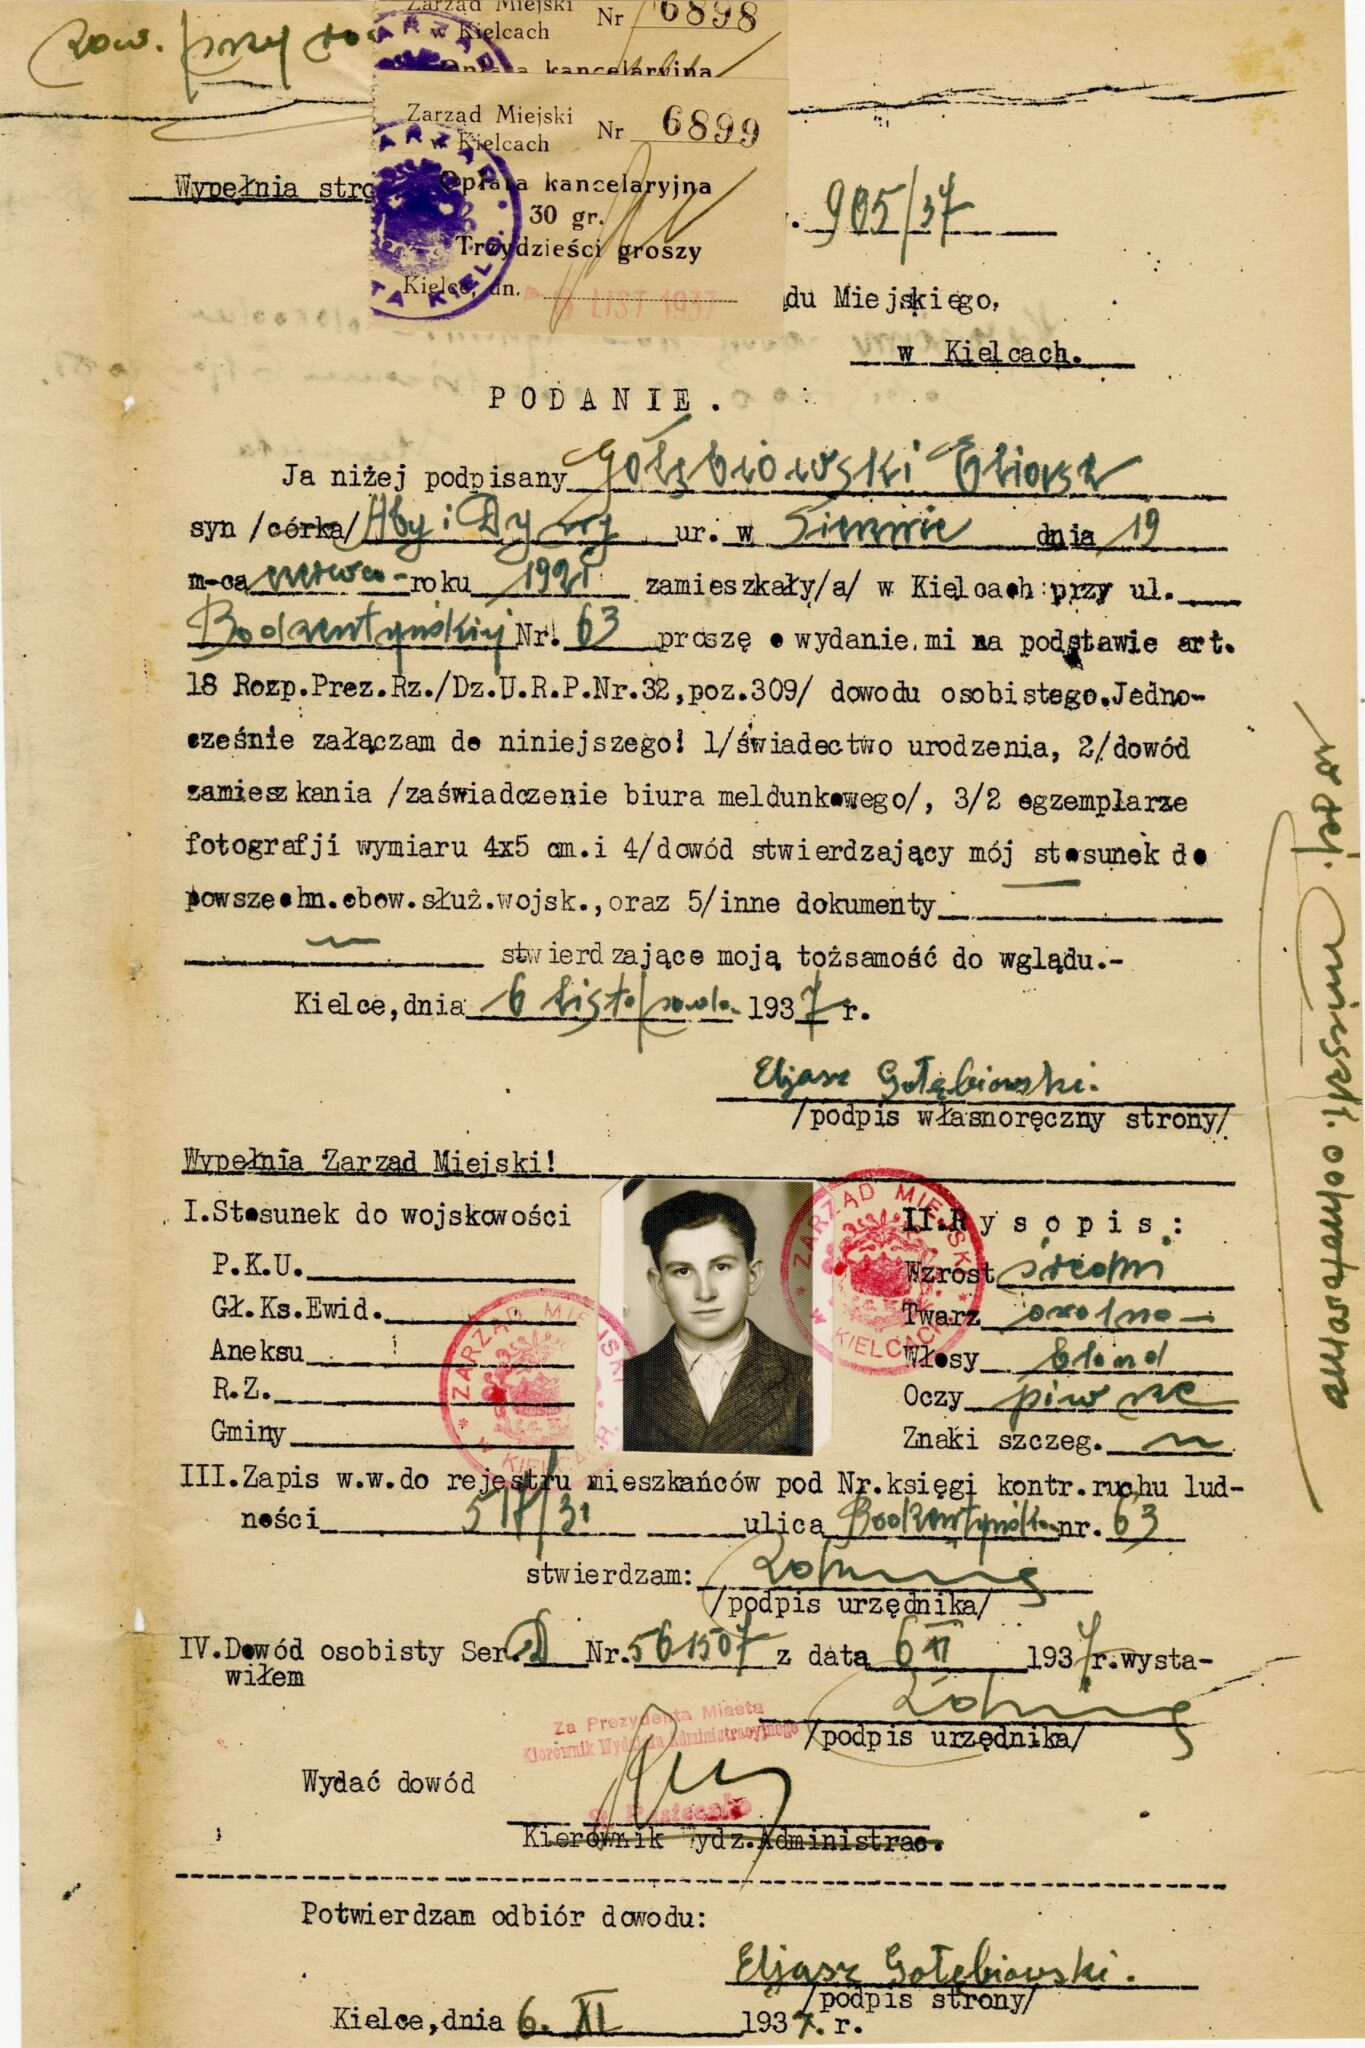 zow. przy
Zarząd Miejski
w Kielcach
Nr 6898
Opłata kancelaryjna
Zarząd Miejski
w Kielcach
Nr 6899
Opłata kancelaryjna
30 gr.
Trzydzieści groszy
Kielce, dn. LIST 1937
Wypełnia stro
905/37
du Miejskiego,
w Kielcach.
PODANIE.
Ja niżej podpisany Gołębiowski Eliasz
syn /córka/ Aby i ur. w dnia 19
m-ca roku 1921 zamieszkały/a/ w Kielcach przy ul.
Bodzentyńskiej Nr. 63 proszę o wydanie mi na podstawie art.
18 Rozp.Prez.Rz./Dz.U.R.P.Nr.32,poz.309/ dowodu osobistego.Jedno-
cześnie załączam do niniejszego! 1/świadectwo urodzenia, 2/dowód
zamieszkania /zaświadczenie biura meldunkowego/, 3/2 egzemplarze
fotografji wymiaru 4x5 cm.i 4/dowód stwierdzający mój stosunek do
powszechn.obow.służ.wojsk.,oraz 5/inne dokumenty
stwierdzające moją tożsamość do wglądu.-
Kielce,dnia 6 listopada 1937 r.
Eljasz Gołębiowski.
/podpis własnoręczny strony/
Wypełnia Zarząd Miejski!
I.Stosunek do wojskowości
P.K.U.
Gł.Ks.Ewid.
Aneksu
R.Z.
Gminy
ZARZĄD MIEJSKI
* w KIELCACH
ZARZĄD MIEJSKI
* w KIELCACH *
II.Rysopis:
Wzrost średni
Twarz owalna
Włosy blond
Oczy piwne
Znaki szczeg.
III.Zapis w.w.do rejestru mieszkańców pod Nr.księgi kontr.ruchu lud-
ności 517/31 ulica Bodzentyńska nr. 63
stwierdzam:
/podpis urzędnika/
IV.Dowód osobisty Ser. D Nr. 561507 z data 6 XI 1937 r.wysta-
wiłem
/podpis urzędnika/
Za Prezydenta Miasta
Kierownik Wydziału Administracyjnego
Wydać dowód
Kierownik Wydz.Administrac.
Potwierdzam odbiór dowodu:
Eljasz Gołębiowski.
/podpis strony/
Kielce,dnia 6. XI 1937. r.